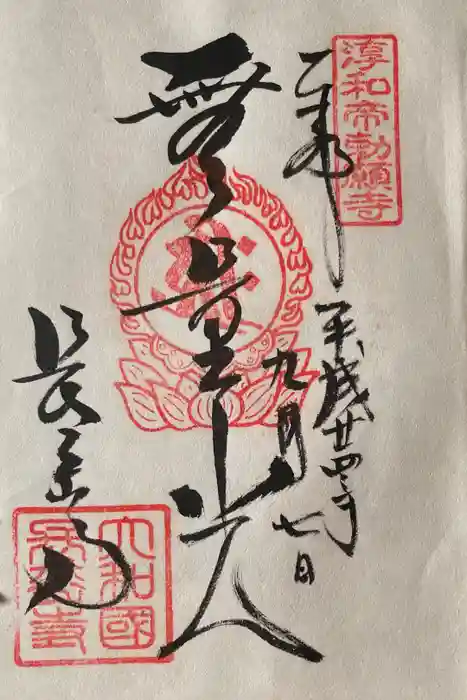 淳和帝勅願寺
奉拝
平成廿四年
九月七日
無量光
長岳寺
大和國
長岳寺